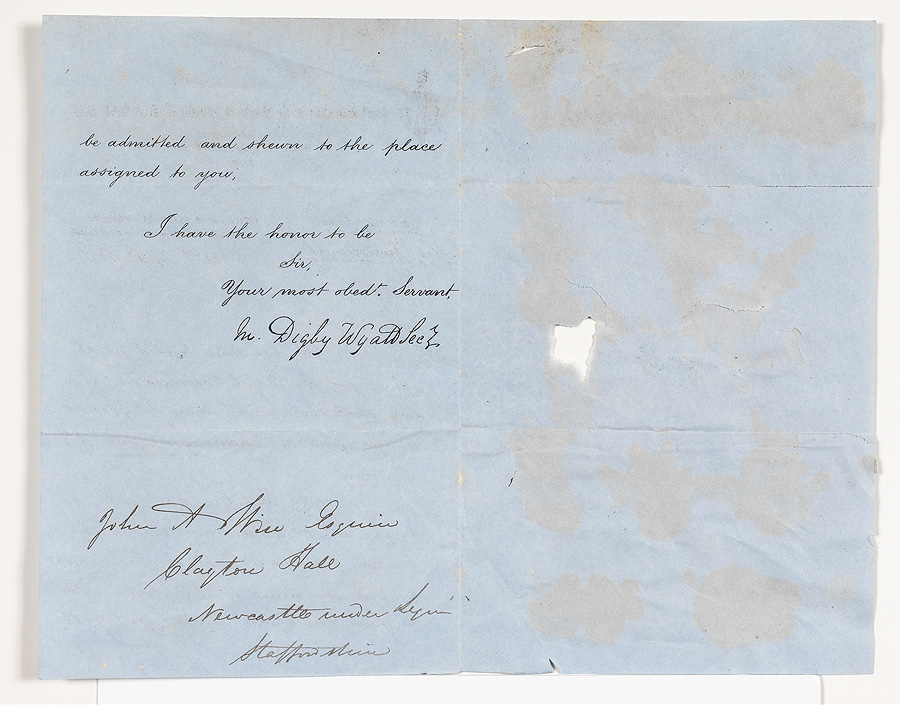 be admitted and shewn to the place
assigned to you,
I have the honor to be
Sir,
Your most obedt. Servant,
M. Digby Wyatt Secy
John A Wise Esquire
Clayton Hall
Newcastle under Lyme
Staffordshire